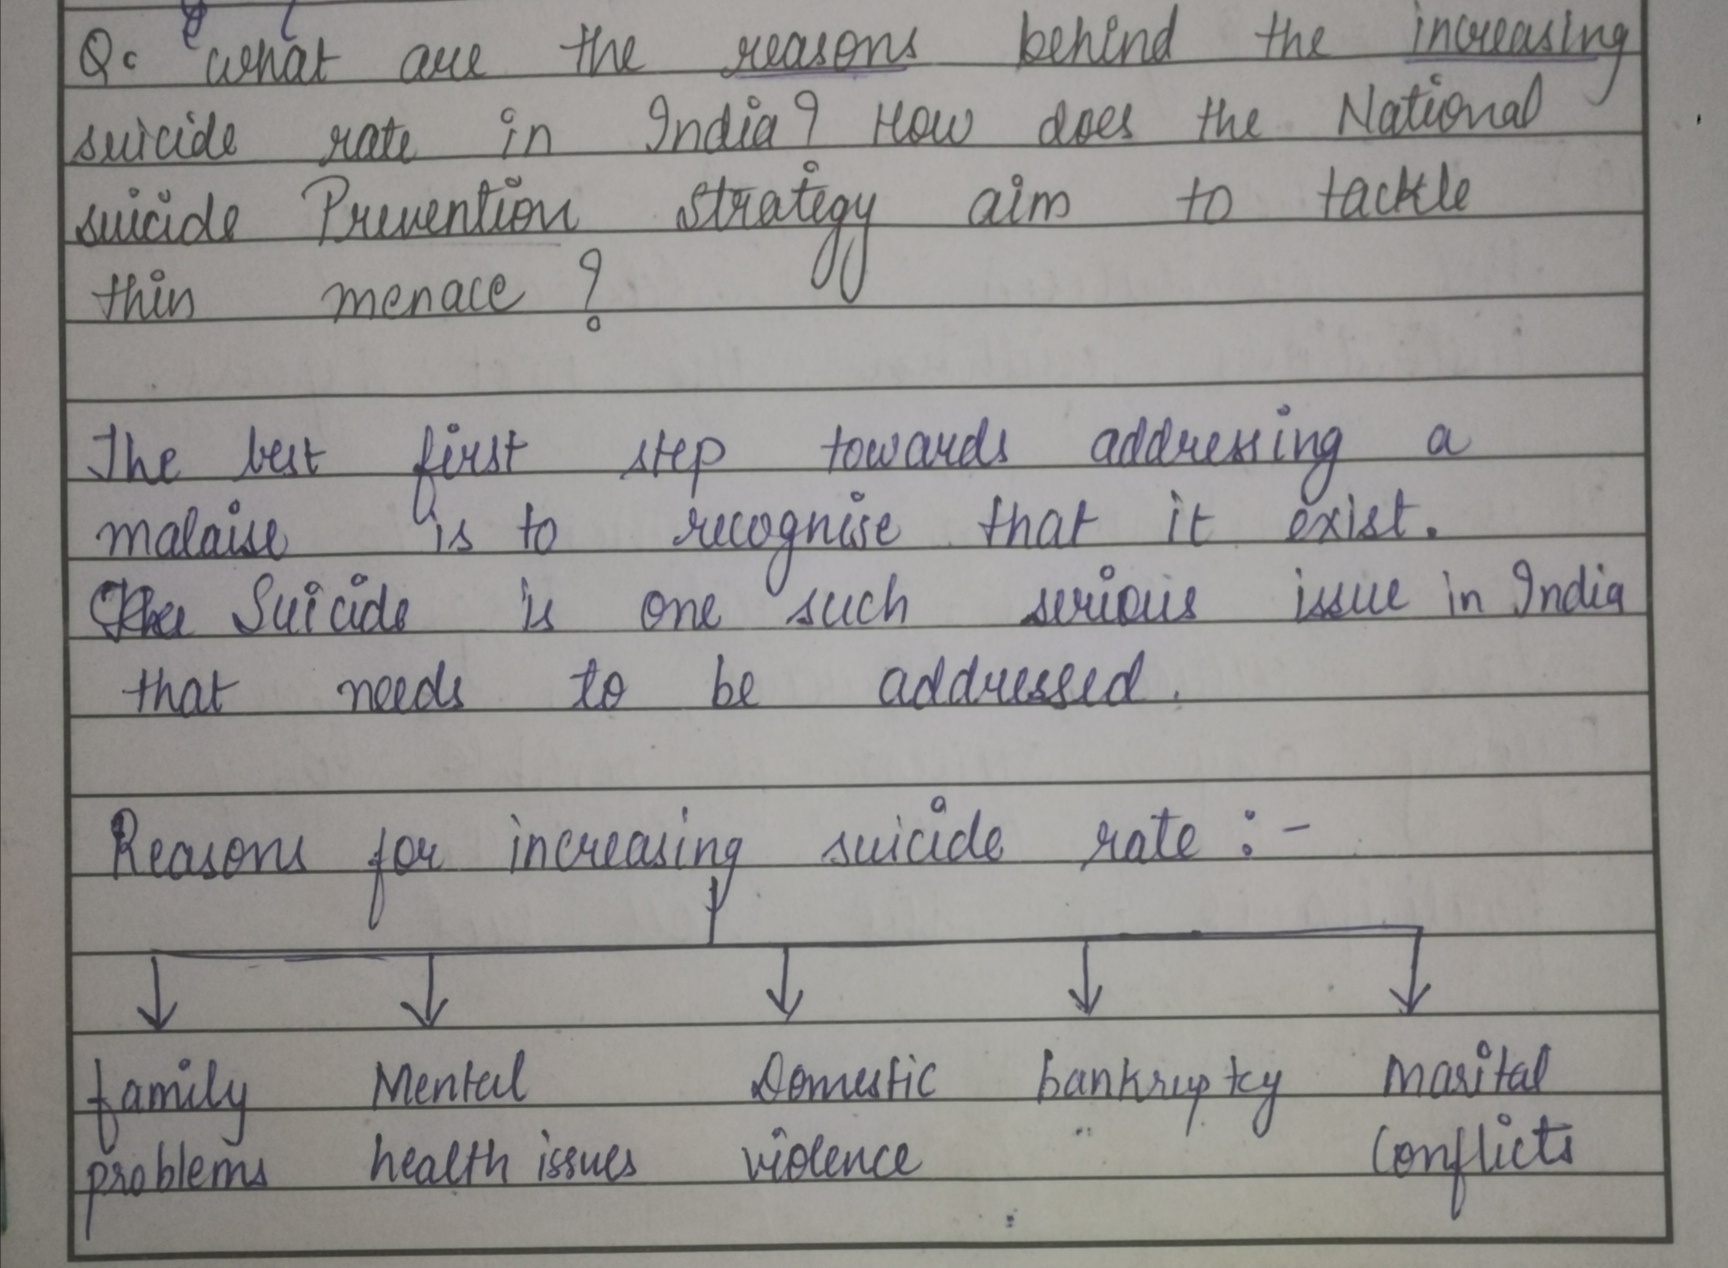 Q. What are the reasons behind the increasing
suicide rate in India? How does the National
suicide Prevention strategy aim to tackle
this menace ?
The best first step towards addressing a
malaise is to recognise that it exist.
Suicide is one such serious issue in India
that needs to be addressed.
Reasons for increasing suicide rate :-
family Mental Domestic bankruptcy marital
problems health issues violence conflicts